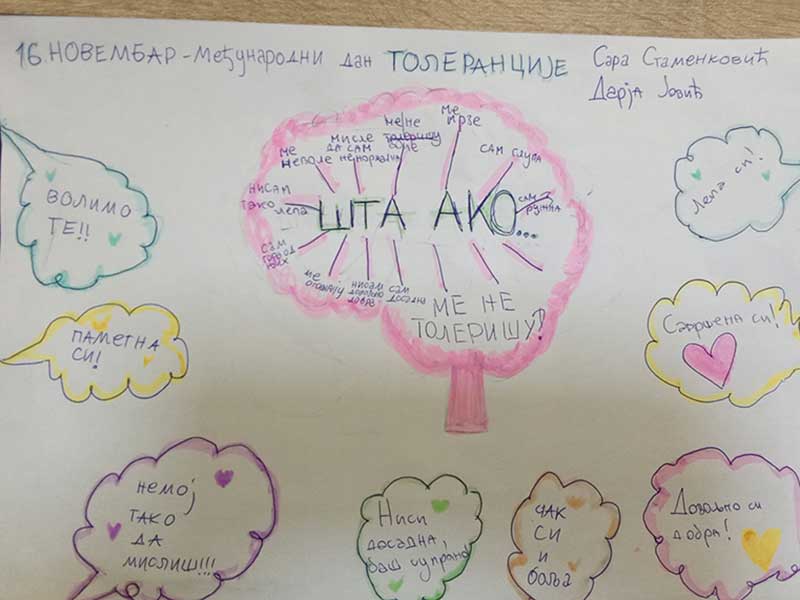 16. НОВЕМБАР - Међународни дан ТОЛЕРАНЦИЈЕ
Сара Стаменковић
Дарја Јовић
ВОЛИМО
ТЕ!!
ПАМЕТНА
СИ!
немој
тако
да
мислиш!!!
ме
неполе
мисле
да сам
ненормална
ме не
толеришу
ме
мрзе
сам глупа
сам
ружна
нисам
тако лепа
ШТА АКО...
сам
гора од
њих
ме
нисам
довољно
добра
сам
досадна
МЕ НЕ
ТОЛЕРИШУ?
Лепа си!
Савршена си!
Ниси
досадна,
баш супротно
ЧАК
СИ
И
боља
Довољно си
добра!